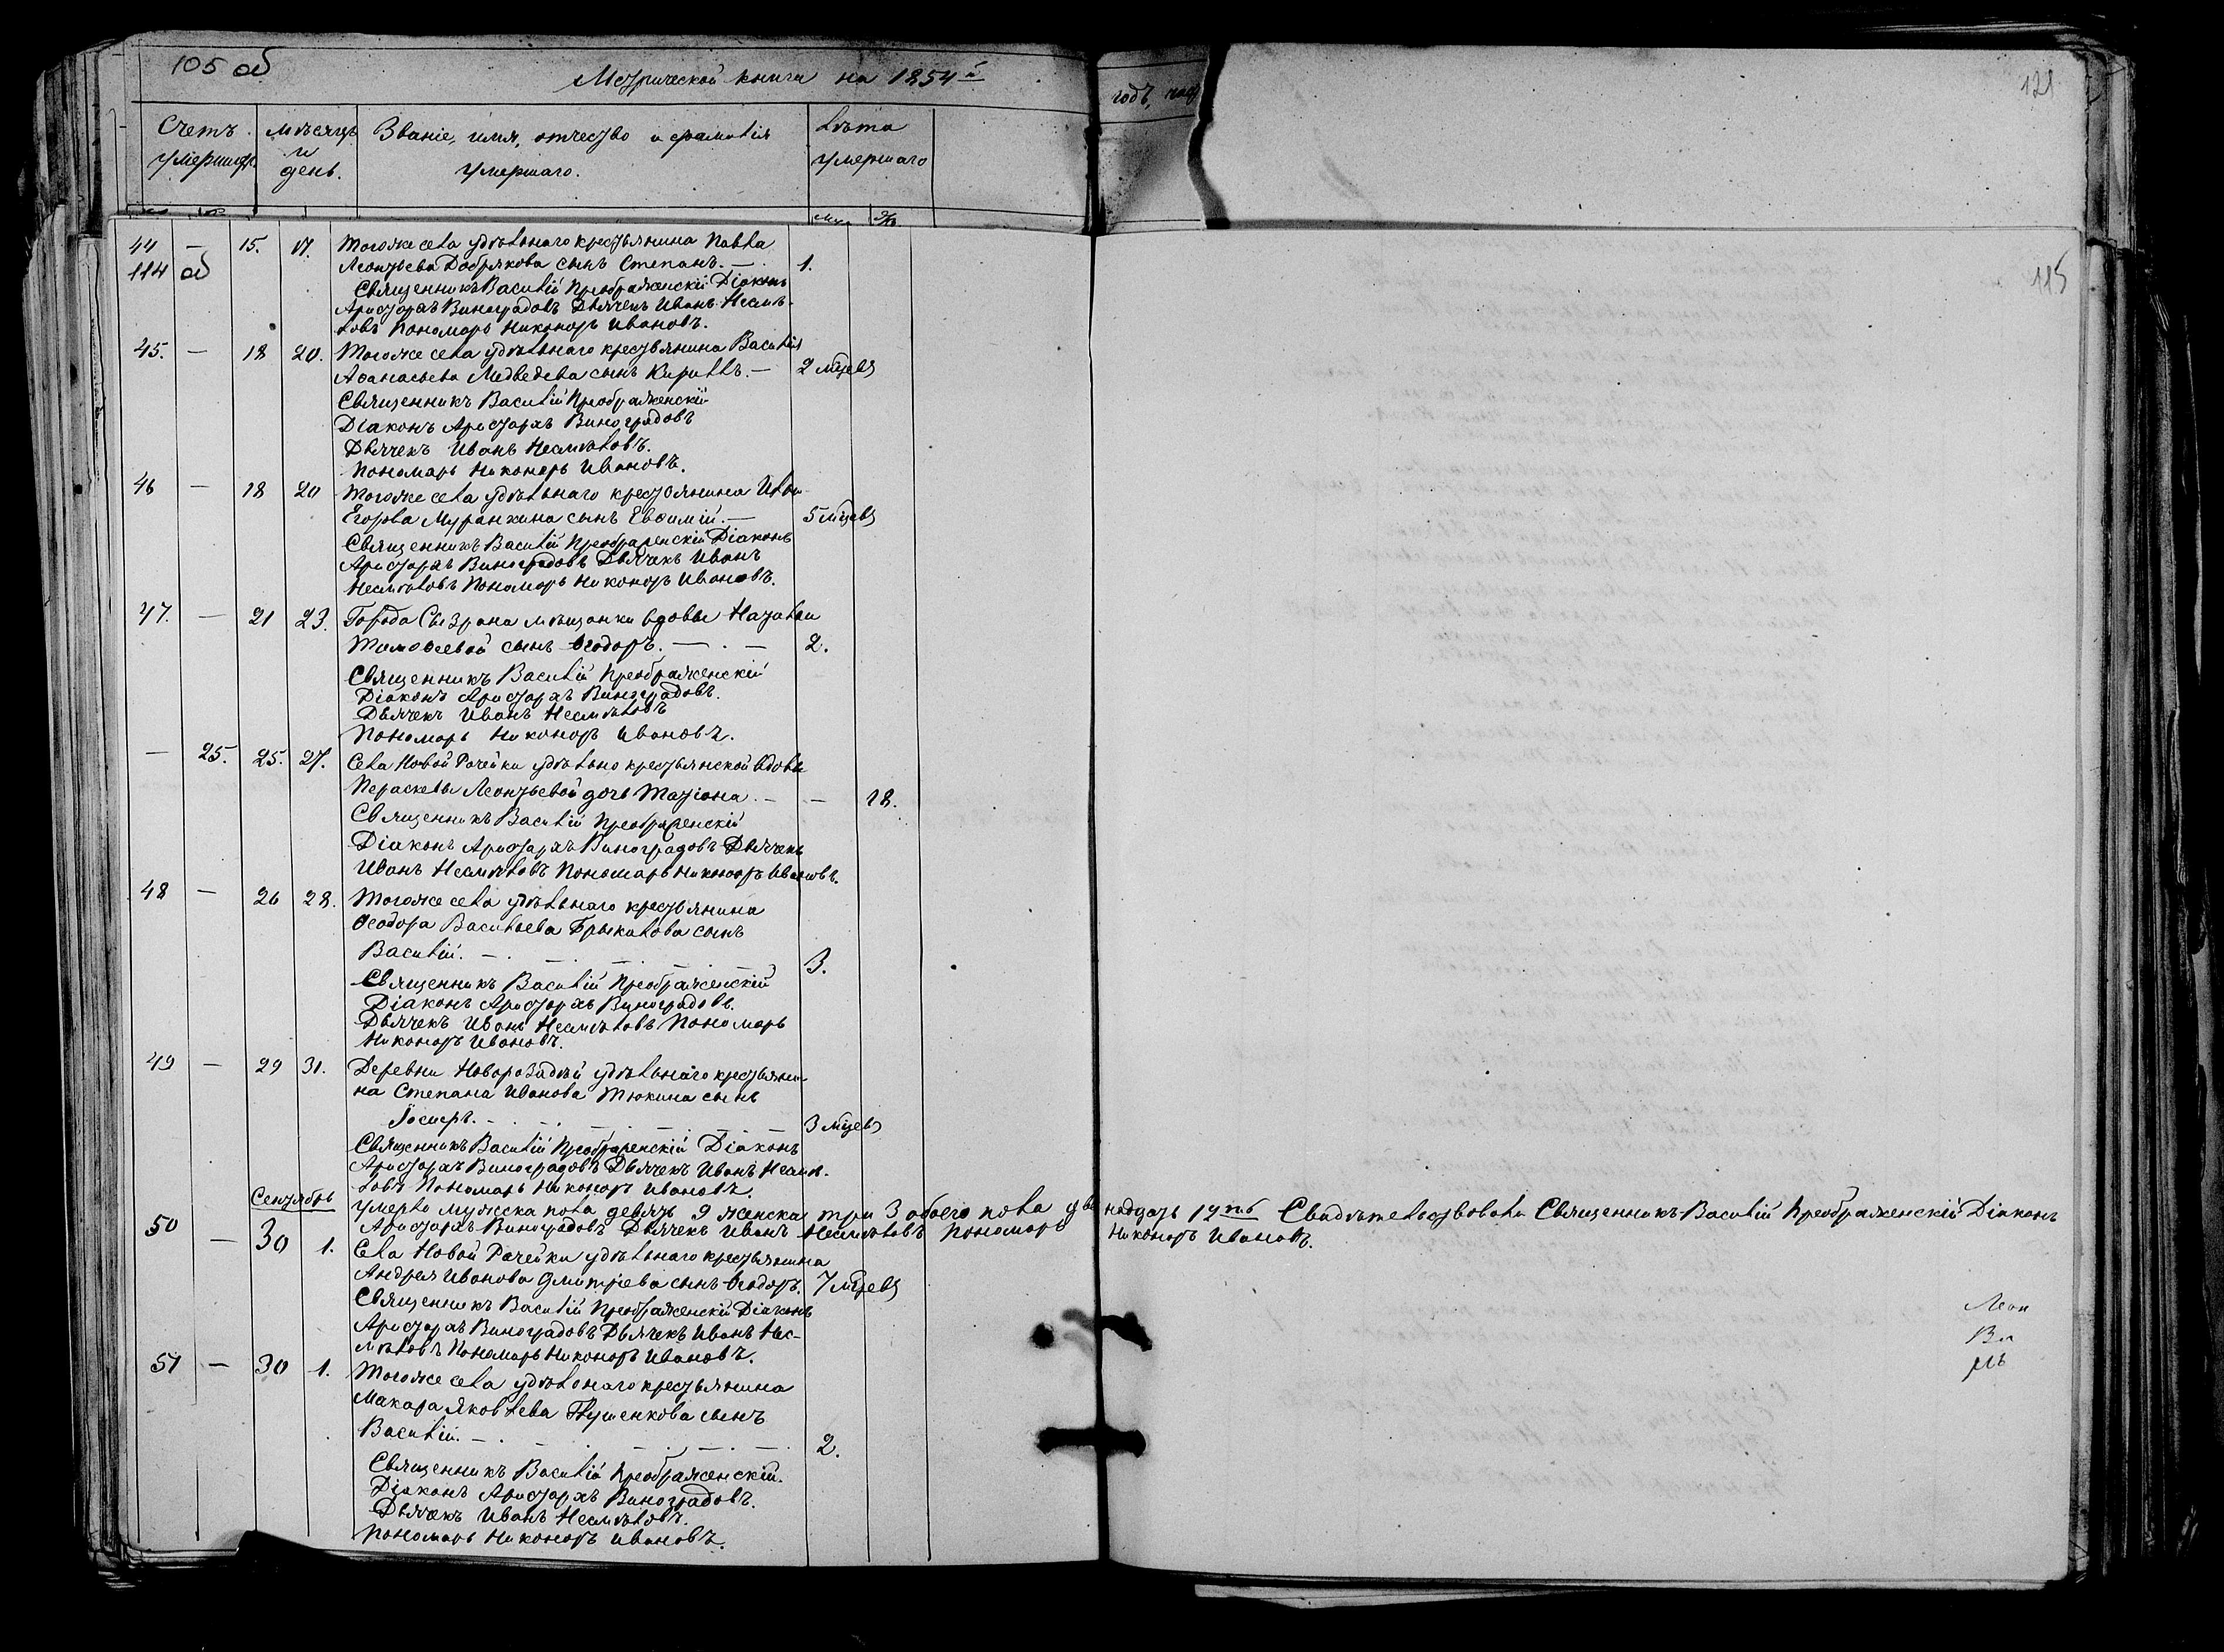 105 об
Метрической книги на 1854й
годъ, час
121
Счетъ умершихъ.
мѣсяцъ и день.
Званіе, имя, отчество и фамилія умершаго.
Лѣта умершаго
44 — 15. 17. Тогоже села удѣльнаго крестьянина Павла
114 об
Леонтьева Добрякова сынъ Степанъ. — 1.
115
Священникъ Василій Преображенскій Діаконъ
Аристархъ Виноградовъ Дьячекъ Иванъ Несмѣ-
ловъ Пономарь Никоноръ Ивановъ.
45. — 18 20. Тогоже села удѣльнаго крестьянина Василія
Аѳанасьева Медведева сынъ Кириллъ. — 2 мѣцевъ
Священникъ Василій Преображенскій
Діаконъ Аристархъ Виноградовъ
Дьячекъ Иванъ Несмѣловъ.
Пономарь Никоноръ Ивановъ.
46 — 18 20 Тогоже села удѣльнаго крестьянина Ильи
Егорова Муранкина сынъ Евѳимій. — 5 мѣцевъ
Священникъ Василій Преображенскій Діаконъ
Аристархъ Виноградовъ Дьячекъ Иванъ
Несмѣловъ Пономарь Никоноръ Ивановъ.
47. — 21 23. Города Сызрана мѣщанки вдовы Натальи
Тимоѳеевой сынъ Ѳеодоръ. — . — 2.
Священникъ Василій Преображенскій
Діаконъ Аристархъ Виноградовъ.
Дьячекъ Иванъ Несмѣловъ
Пономарь Никоноръ Ивановъ.
— 25. 25. 27. Села Новой Рачейки удѣльно крестьянской вдовы
Пераскевы Леонтьевой дочь Татіана. — — 18.
Священникъ Василій Преображенскій
Діаконъ Аристархъ Виноградовъ Дьячекъ
Иванъ Несмѣловъ Пономарь Никоноръ Ивановъ.
48 — 26 28. Тогоже села удѣльнаго крестьянина
Ѳеодора Васильева Брыкалова сынъ
Василій. — 3.
Священникъ Василій Преображенскій
Діаконъ Аристархъ Виноградовъ.
Дьячекъ Иванъ Несмѣловъ Пономарь
Никоноръ Ивановъ.
49 — 29 31. Деревни удѣльнаго крестьяни-
на Степана Иванова Тюкина сынъ
Іосифъ. — 3 мѣцевъ
Священникъ Василій Преображенскій Діаконъ
Аристархъ Виноградовъ Дьячекъ Иванъ Несмѣ-
ловъ Пономарь Никоноръ Ивановъ.
Сентябрь
Умерло мужеска пола девять 9 женска три 3 обоего пола двенадцать 12ть Свидѣтельствовали Священникъ Василій Преображенскій Діаконъ
Аристархъ Виноградовъ Дьячекъ Иванъ Несмѣловъ Пономарь Никоноръ Ивановъ.
50 — 30 1. Села Новой Рачейки удѣльнаго крестьянина
Андрея Иванова Дмитріева сынъ Ѳеодоръ. 7 мѣцевъ
Священникъ Василій Преображенскій Діаконъ
Аристархъ Виноградовъ Дьячекъ Иванъ Нес-
мѣловъ Пономарь Никоноръ Ивановъ.
51 — 30 1. Тогоже села удѣльнаго крестьянина
Макара Яковлева Глушенкова сынъ
Василій. — 2.
Священникъ Василій Преображенскій.
Діаконъ Аристархъ Виноградовъ.
Дьячекъ Иванъ Несмѣловъ.
Пономарь Никоноръ Ивановъ.